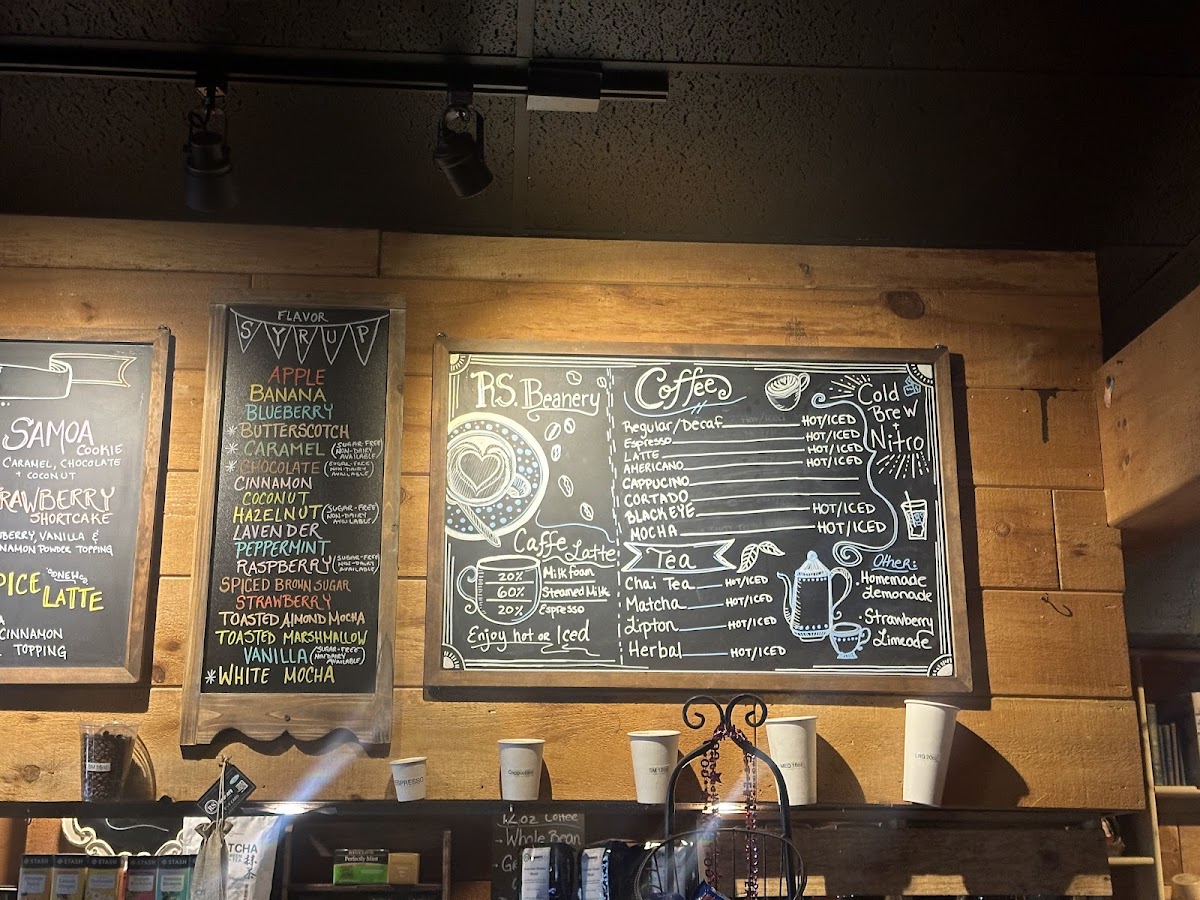 SAMOA
COOKIE
CARAMEL, CHOCOLATE
+ COCONUT
RAWBERRY
SHORTCAKE
BERRY, VANILLA &
NNAMON POWDER TOPPING
PICE
LATTE
CINNAMON
TOPPING
FLAVOR
SYRUP
APPLE
BANANA
BLUEBERRY
*BUTTERSCOTCH
*CARAMEL (SUGAR-FREE NON-DAIRY AVAILABLE)
*CHOCOLATE (SUGAR-FREE NON-DAIRY AVAILABLE)
CINNAMON
COCONUT
HAZELNUT (SUGAR-FREE NON-DAIRY AVAILABLE)
LAVENDER
PEPPERMINT
RASPBERRY (SUGAR-FREE NON-DAIRY AVAILABLE)
SPICED BROWN SUGAR
STRAWBERRY
TOASTED ALMOND MOCHA
TOASTED MARSHMALLOW
VANILLA (SUGAR-FREE NON-DAIRY AVAILABLE)
*WHITE MOCHA
R.S. Beanery
Caffe Latte
20% Milk foam
60% Steamed Milk
20% Espresso
Enjoy hot or Iced
Coffee
Regular/Decaf HOT/ICED
Espresso HOT/ICED
LATTE HOT/ICED
AMERICANO HOT/ICED
CAPPUCINO
CORTADO
BLACK EYE HOT/ICED
MOCHA HOT/ICED
Tea
Chai Tea HOT/ICED
Matcha HOT/ICED
Lipton HOT/ICED
Herbal HOT/ICED
Cold
Brew
+
Nitro
Other:
. Homemade
Lemonade
. Strawberry
Limeade
ESPRESSO
Cappuccino
SM 12oz
MED 16oz
LRG 20oz
12oz Coffee
- Whole Bean
STASH
STASH
STASH
STASH
STASH
Perfectly Mint